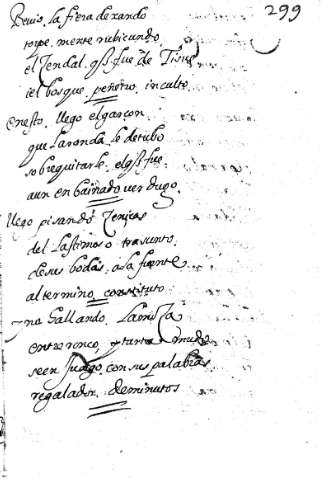 299
Beuio, la fiera dexando
torpe, mente rubicundo
el Cendal. q̄ fue de Tisue
i el bosque, penetro, inculto
en esto, llego el garçon
que la ronda, le detubo
sobre quitarle, el q̄ fue
aun en bainado verdugo
llego pisando Ceniças
del lastimoso trasunto
de sus bodas, a la fuente
al termino, constituto
y no hallando, la niⁿ̃a
entre ronco, y tarta mudo
se en juago, con sus palabras
regalador, de minutos